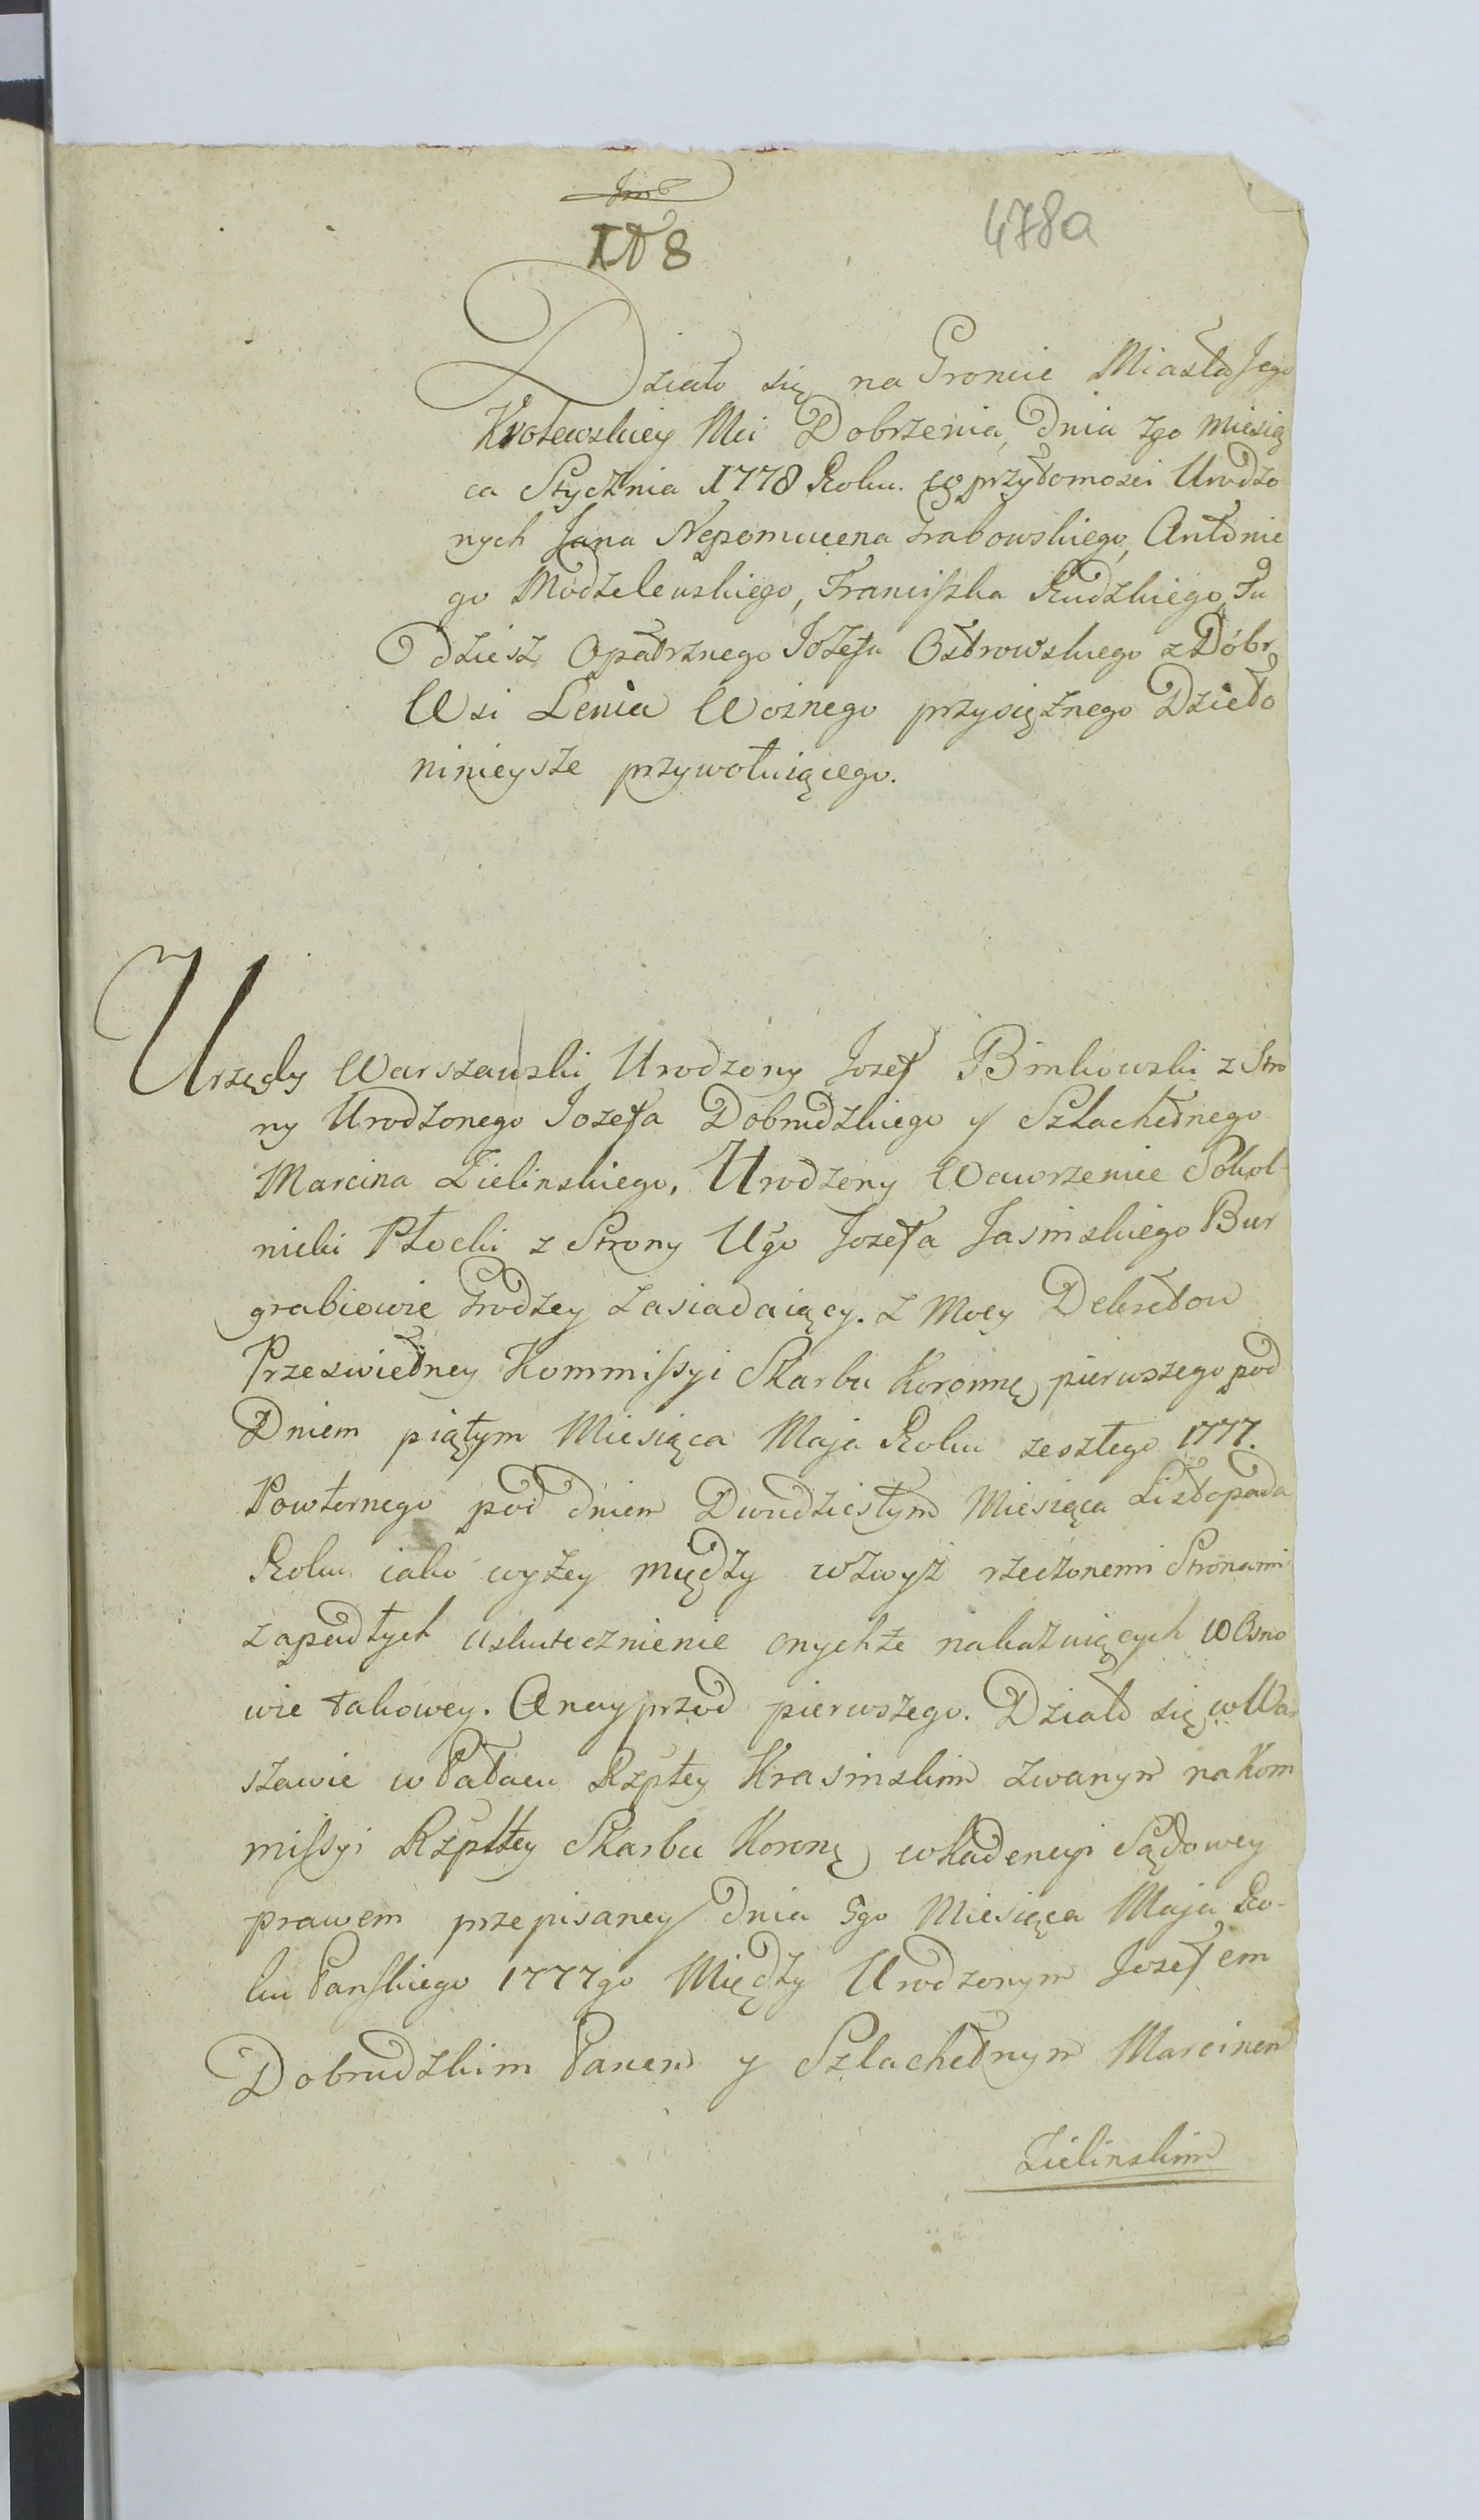 N 8
478a
Działo się na Groncie Miasta Jego
Krolewskiey Mci Dobrzenia, Dnia 7go miesią
ca Stycznia 1778 Roku. w przytomosci Urodzo
nych Jana Nepomucena Grabowskiego, Antonie
go Modzelewskiego, Franciszka Rudzkiego, Tu
dziesz Opatrznego Jozefa Ostrowskiego z Dóbr
Wsi Lenia Woznego przysiężnego Dzieło
ninieysze przywołuiącego.
Urzędy Warszawski Urodzony Jozef Binkowski z Stro
ny Urodzonego Jozefa Dobrudzkiego y Szlachetnego
Marcina Zielinskiego, Urodzony Wawrzeniec Sokol-
nicki Płocki z Strony Ugo Jozefa Jasinskiego Bur
grabiowie Grodzcy zasiadaiący. z Mocy Dekretow
Przeswietney Kommissyi Skarbu Koronnę pierwszego pod
Dniem piątym Miesiąca Maja Roku zeszłego 1777.
Powternego pod dniem Dwudziestym Miesiąca Listopada
Roku iako wyżey między wzwyż rzeczonemi Stronami
zapadłych uskutecznienie onychże nakazuiących w Osno
wie takowey. A nayprzod pierwszego. Działo się w War
szawie w Pałacu Rzpltey Krasinskim zwanym na Kom
missyi Rzpltey Skarbu Koronę w Kadencyi Sądowey
prawem przepisaney Dnia 5go Miesiąca Maja Ro-
ku Panskiego 1777go Między Urodzonym Jozefem
Dobrudzkim Panem y Szlachetnym Marcinem
Zielinskim